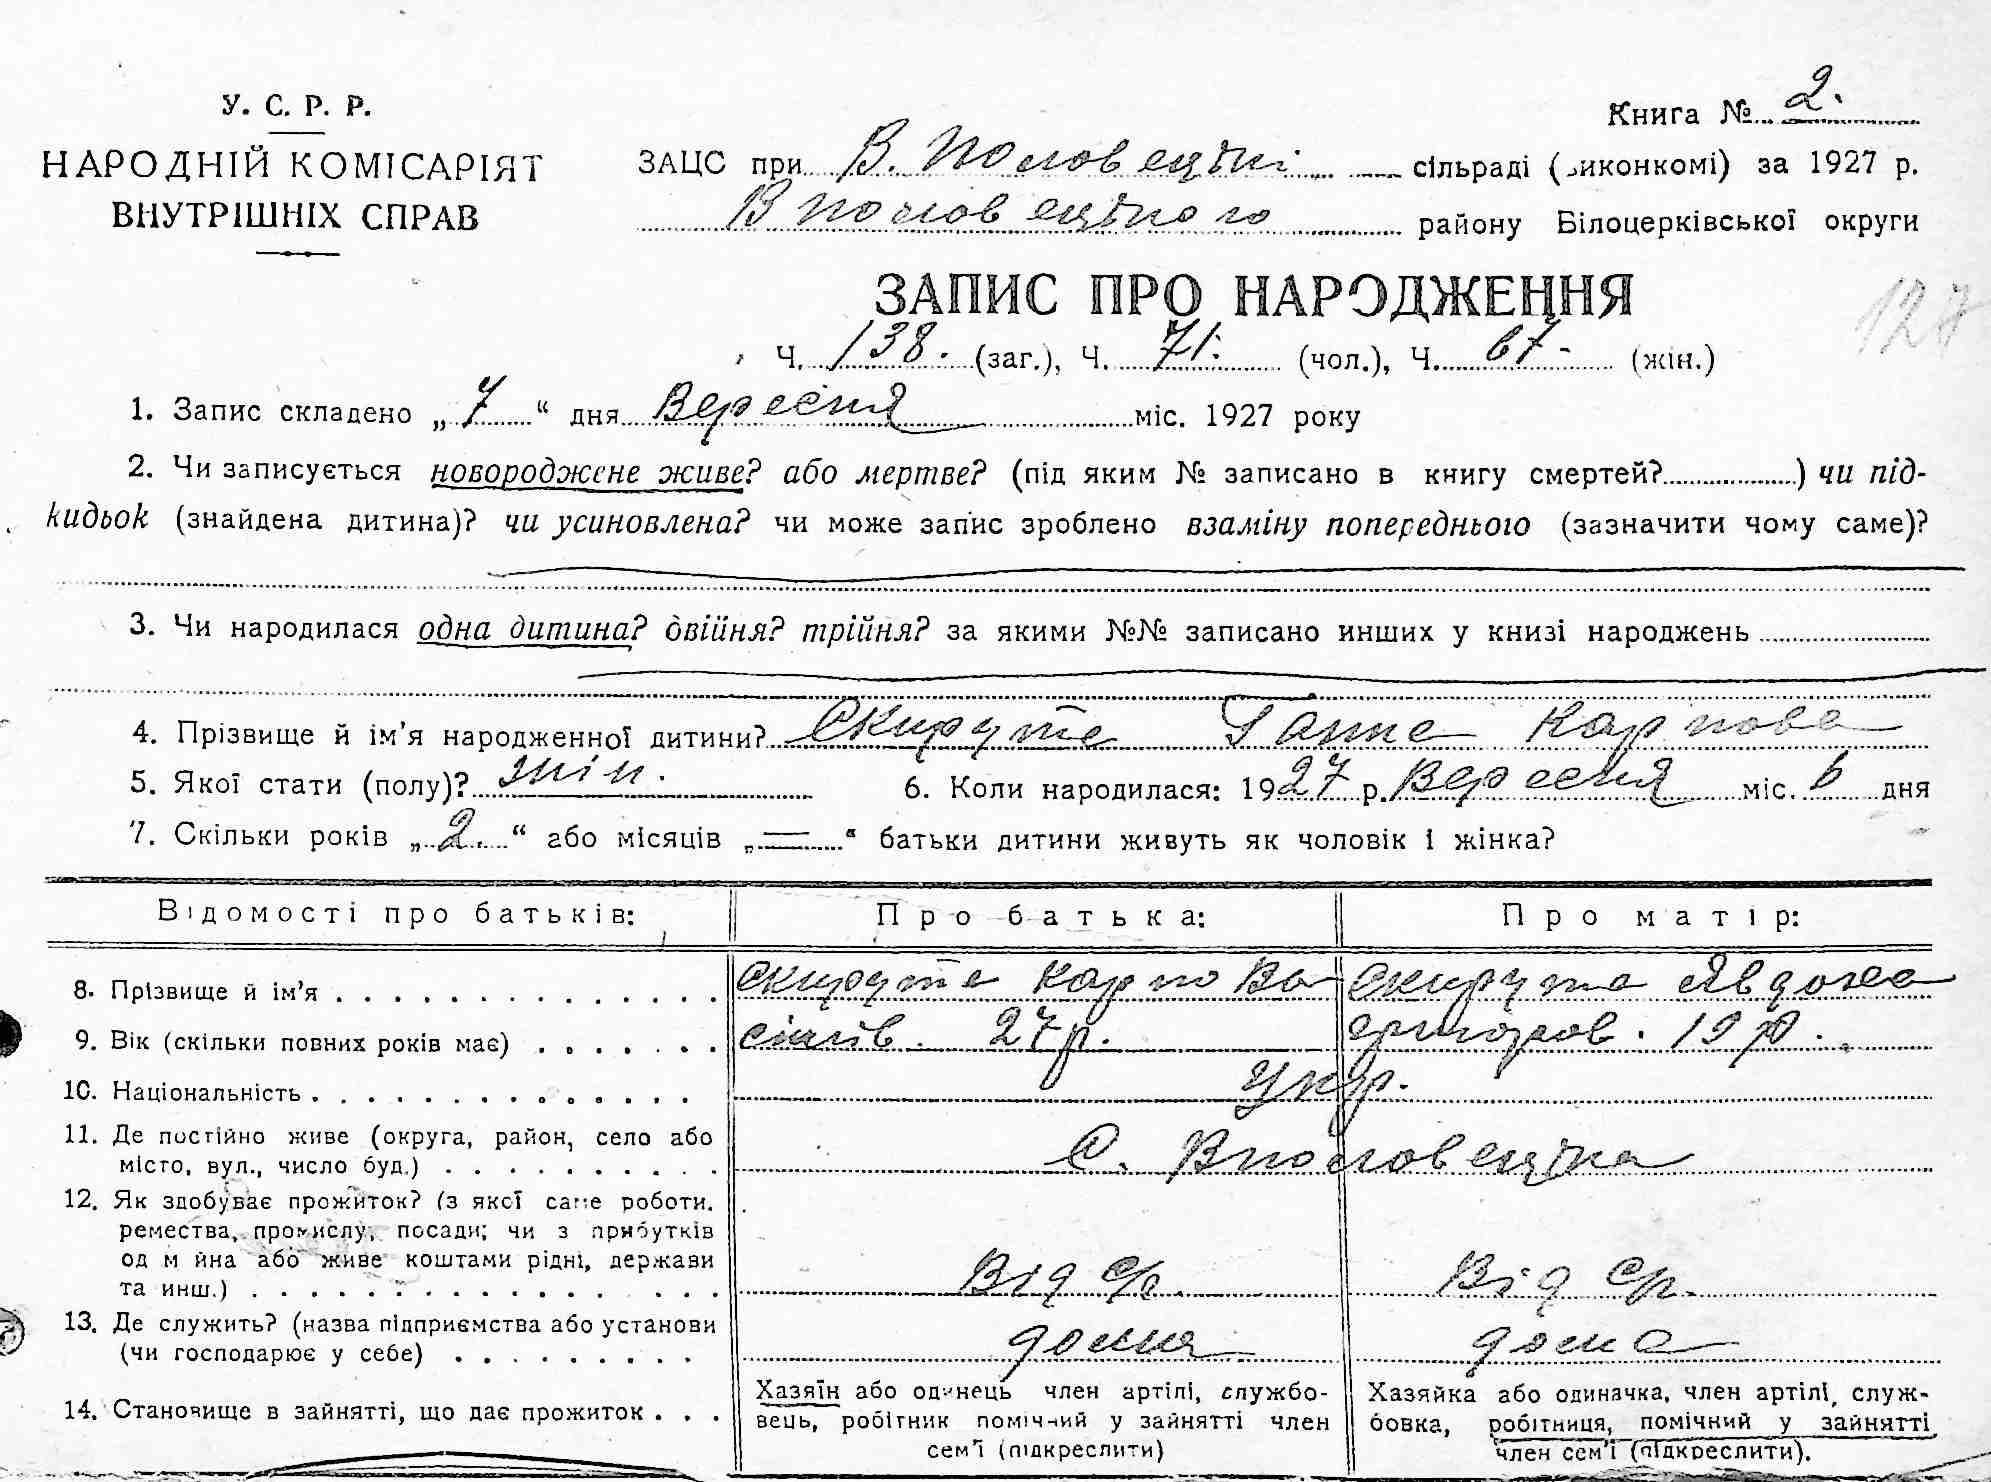 У. С. Р. Р.
НАРОДНІЙ КОМІСАРІЯТ
ВНУТРІШНІХ СПРАВ
Книга № 2.
ЗАЦС при В. Половецкі сільраді (виконкомі) за 1927 р.
В Половецького району Білоцерківської округи
ЗАПИС ПРО НАРОДЖЕННЯ
127
Ч. 138. (заг.), Ч. 71. (чол.), Ч. 67- (жін.)
1. Запис складено „7“ дня Вересня міс. 1927 року
2. Чи записується новороджене живе? або мертве? (під яким № записано в книгу смертей?..........) чи під-
кидьок (знайдена дитина)? чи усиновлена? чи може запис зроблено взаміну попереднього (зазначити чому саме)?
3. Чи народилася одна дитина? двійня? трійня? за якими №№ записано инших у книзі народжень
4. Прізвище й ім’я народженної дитини? Скирута Ганна Карпова
5. Якої стати (полу)? жін. 6. Коли народилася: 1927 р. Вересня міс. 6 дня
7. Скільки років „2.“ або місяців „—“ батьки дитини живуть як чоловік і жінка?
Відомості про батьків: Про батька: Про матір:
8. Прізвище й ім’я Скирута Карпо Ва- Скирута Явдоха
9. Вік (скільки повних років має) сілів. 27 р. Григоров. 19 р.
10. Національність Укр.
11. Де постійно живе (округа, район, село або
місто, вул., число буд.) С. В Половецка
12. Як здобуває прожиток? (з якої саме роботи,
ремества, промислу, посади; чи з прибутків
од майна або живе коштами рідні, держави
та инш.) Від с/г. Від ср.
13. Де служить? (назва підприємства або установи
(чи господарює у себе) дома дома
14. Становище в зайнятті, що дає прожиток
Хазяїн або одинець член артілі, службо-
вець, робітник помічний у зайнятті член
сем’ї (підкреслити)
Хазяйка або одиначка, член артілі, служ-
бовка, робітниця, помічний у зайнятті
член сем’ї (підкреслити).